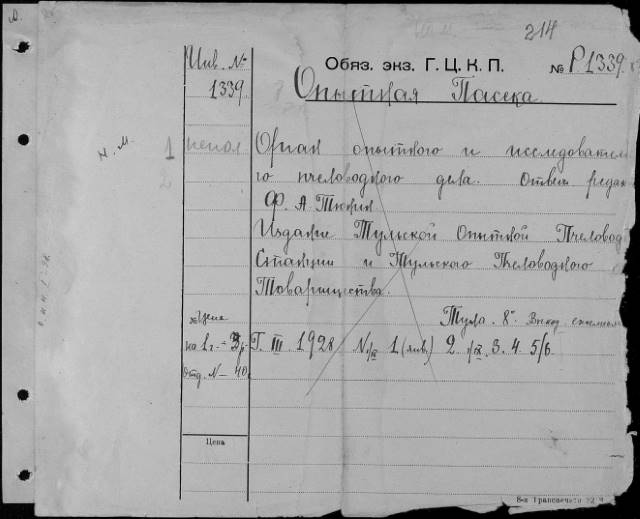 214
Инв. №
1339
Обяз. экз. Г. Ц. К. П.
№ Р1339
Опытная Пасека.
н. м.
1
2
непол
Орган опытного и исследовател
го пчеловодного дела. Ответ. редак
Ф. А. Тюнин
Издание Тульской Опытной Пчеловод
Станции и Тульского Пчеловодного
Товарищества.
Цена
на 1 г. - 3 р.
отд. № - 40
Тула. 8°.
Г. III. 1928 № 1 (янв.) 2. 3. 4. 5/6
Цена